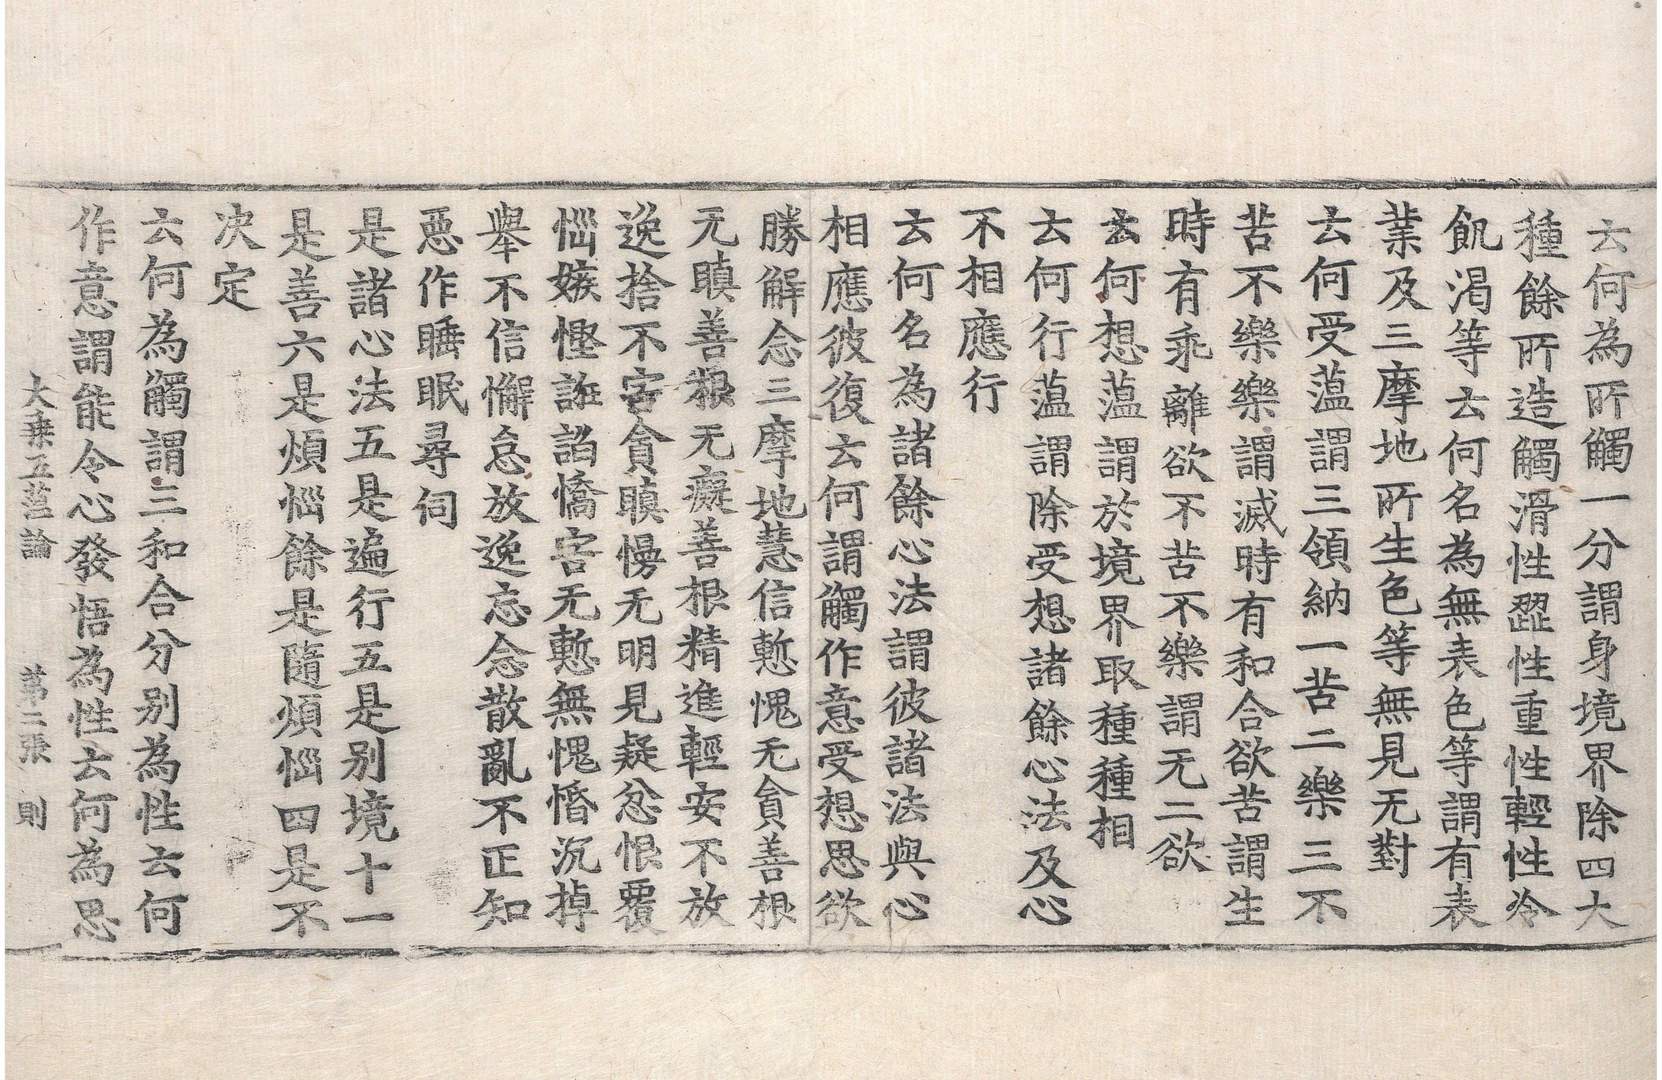 云何為所觸一分謂身境界除四大
種餘所造觸滑性澀性重性輕性冷
飢渴等云何名為無表色等謂有表
業及三摩地所生色等無見无對
云何受薀謂三領納一苦二樂三不
苦不樂樂謂滅時有和合欲苦謂生
時有乖離欲不苦不樂謂无二欲
云何想薀謂於境界取種種相
云何行薀謂除受想諸餘心法及心
不相應行
云何名為諸餘心法謂彼諸法與心
相應彼復云何謂觸作意受想思欲
勝解念三摩地慧信慙愧无貪善根
无瞋善根无癡善根精進輕安不放
逸捨不害貪瞋慢无明見疑忿恨覆
惱嫉慳誑諂憍害无慙無愧惛沉掉
舉不信懈怠放逸忘念散亂不正知
惡作睡眠尋伺
是諸心法五是遍行五是別境十一
是善六是煩惱餘是隨煩惱四是不
決定
云何為觸謂三和合分別為性云何
作意謂能令心發悟為性云何為思
大乗五薀論 第二張 則